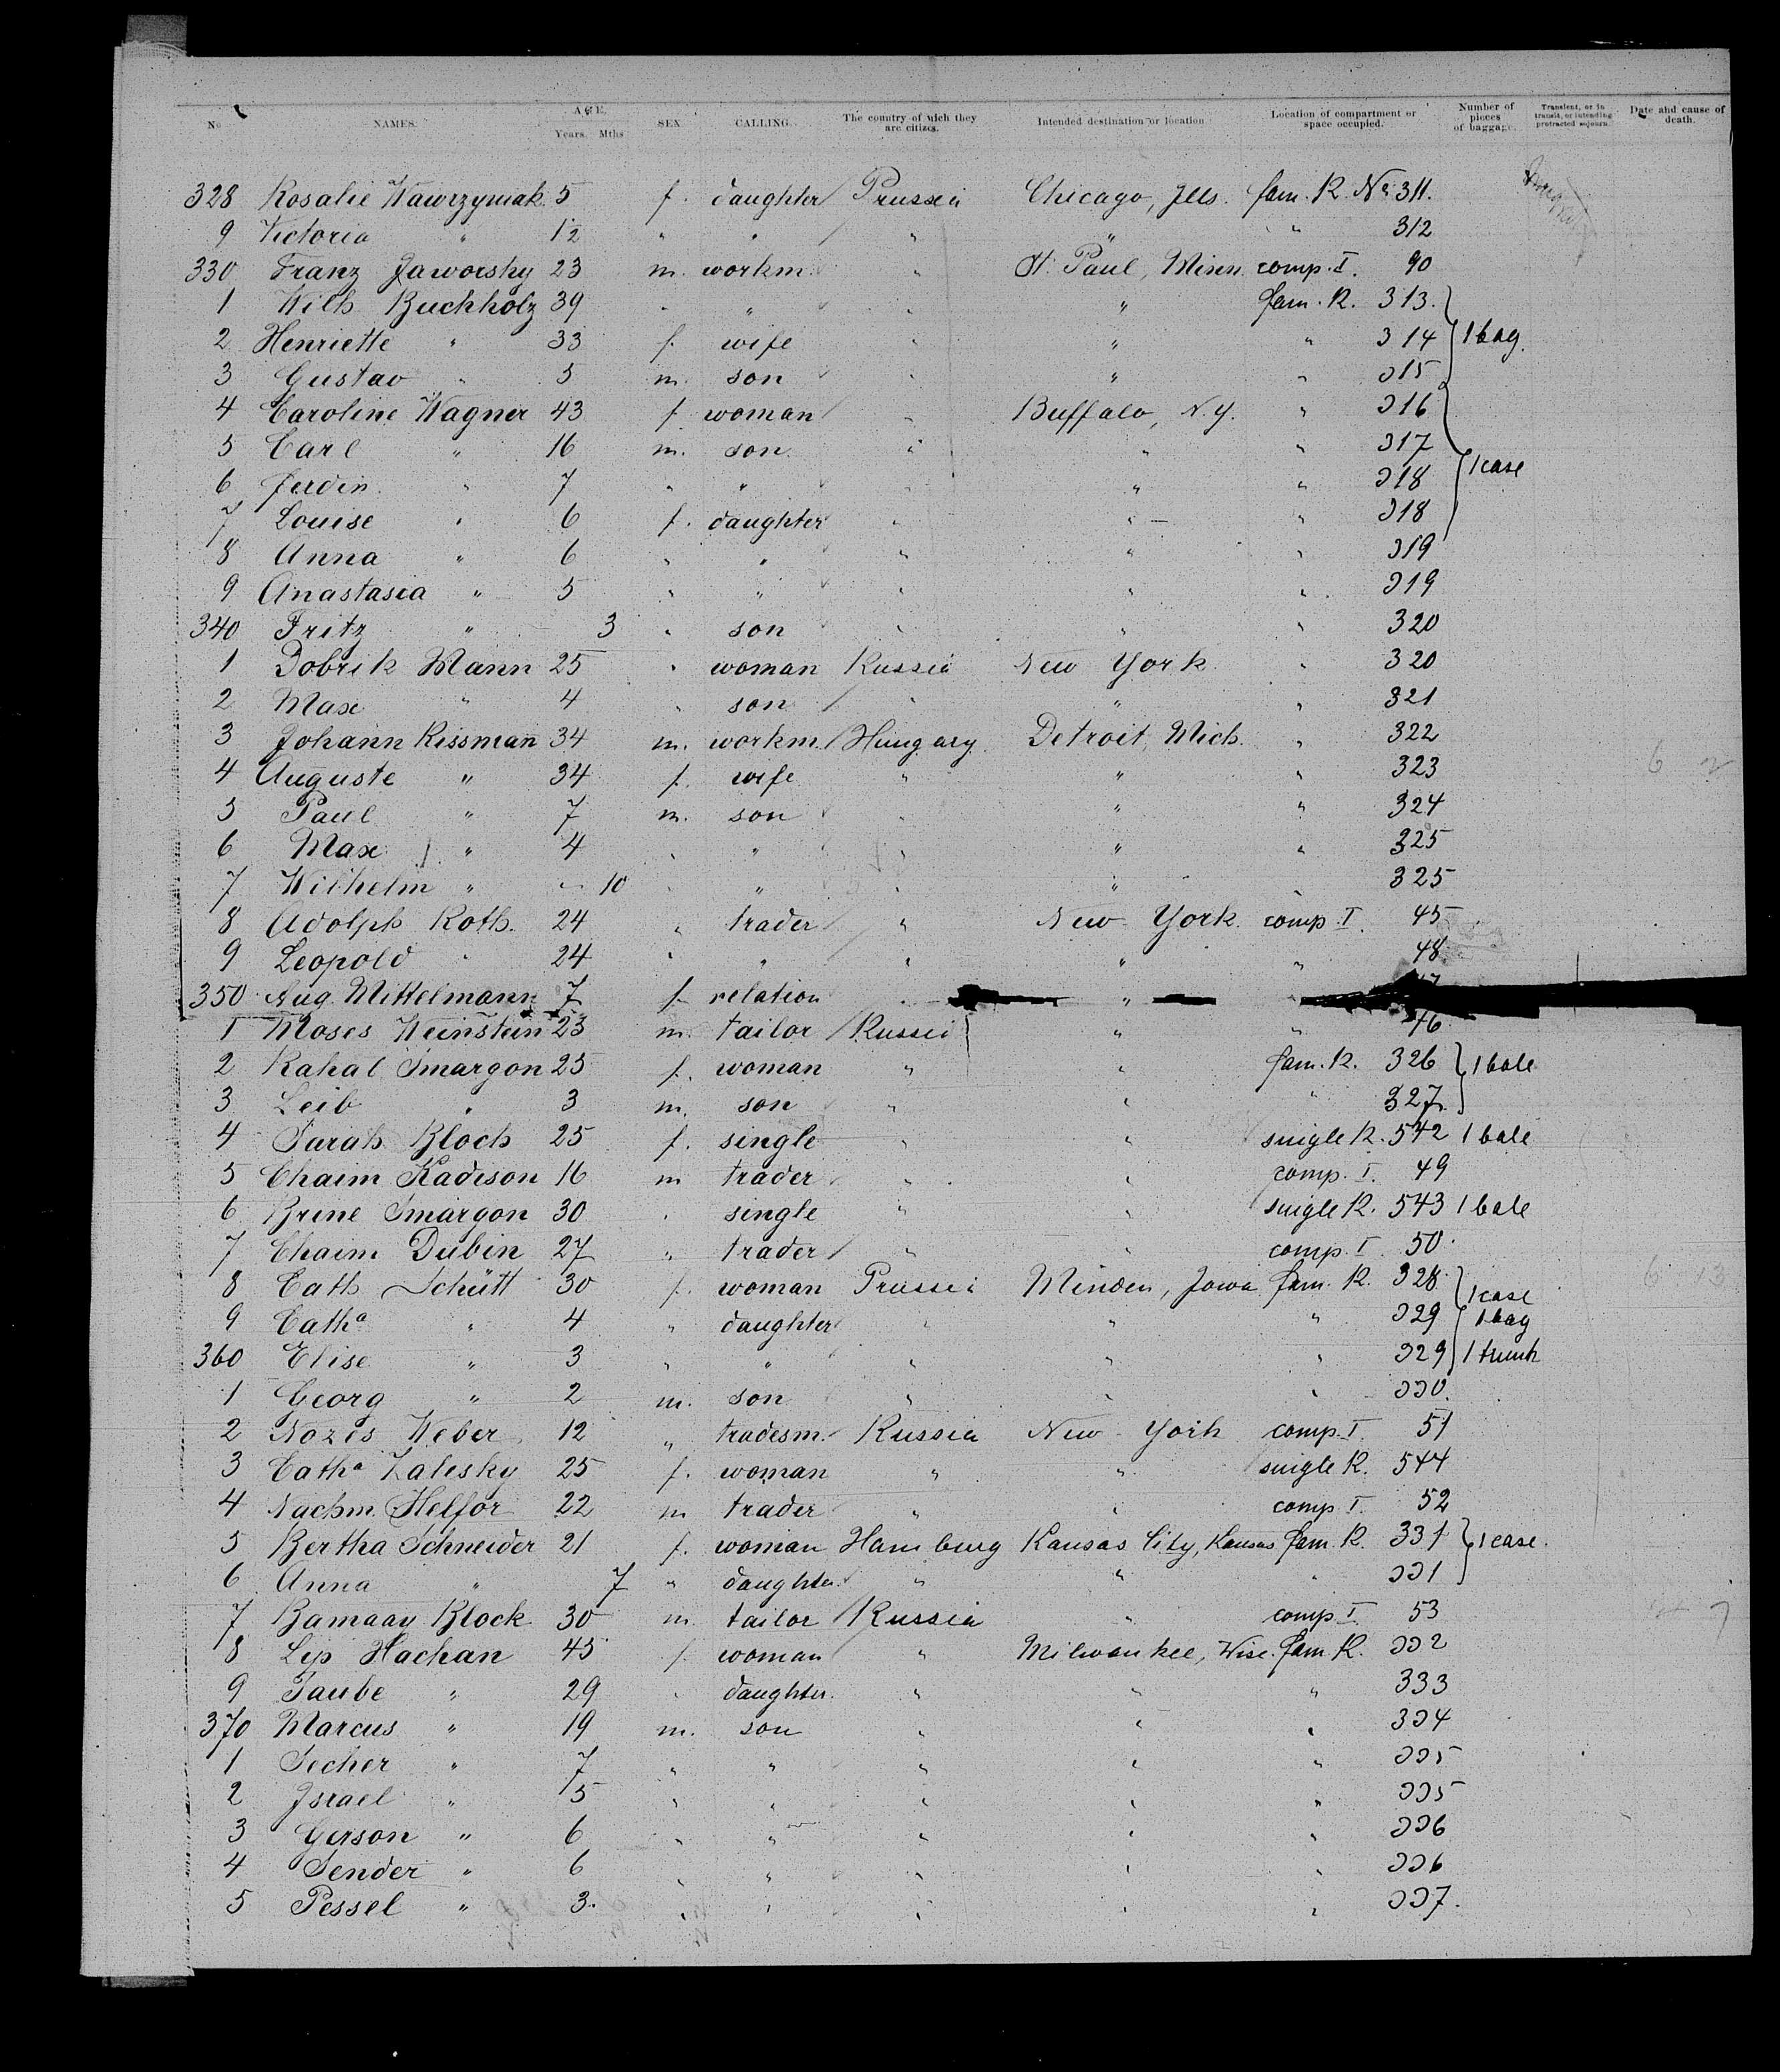 No NAMES. AGE. Years. Mths SEX CALLING. The country of wich they are citizs. Intended destination or location Location of compartment or space occupied. Number of pieces of baggage. Transient, or in transit, or intending protracted sojourn. Date and cause of death.
328 Rosalie Wawrzyniak 5 f. daughter Prussia Chicago, Jlls. fam. R. No 311.
9 Victoria " 12 " " " " " 312
330 Franz Jaworsky 23 m. workm. " St. Paul, Minn. comp. I. 90
1 Wilh Buchholz 39 " " " " fam. R. 313.
2 Henriette " 33 f. wife " " " 314 1 bag.
3 Gustav " 5 m. son " " " 315
4 Caroline Wagner 43 f. woman " Buffalo, N.Y. " 316
5 Carl " 16 m. son " " " 317
6 Ferdin. " 7 " " " " " 318 1 case
7 Louise " 6 f. daughter " " " 318
8 Anna " 6 " " " " " 319
9 Anastasia " 5 " " " " " 319
340 Fritz " 3 " son " " " 320
1 Dobrik Mann 25 " woman Russia New York " 320
2 Max " 4 " son " " " 321
3 Johann Rissman 34 m. workm. Hungary Detroit, Mich. " 322
4 Auguste " 34 f. wife " " " 323 6
5 Paul " 7 m. son " " " 324
6 Max " 4 " " " " " 325
7 Wilhelm " 10 " " " " " 325
8 Adolph Roth. 24 " trader " New York. comp. I. 45
9 Leopold " 24 " " " " " 48
350 Aug. Mittelmann 7 f. relation " "
1 Moses Weinstein 23 m. tailor Russia " " 46
2 Rahal Smargon 25 f. woman " " fam. R. 326 1 bale
3 Leib " 3 m. son " " " 327.
4 Sarah Bloch 25 f. single " " single R. 542 1 bale
5 Chaim Kadison 16 m trader " " comp. I. 49
6 Brine Smargon 30 " single " " single R. 543 1 bale
7 Chaim Dubin 27 " trader " " comp. I 50
8 Cath Schütt 30 f. woman Prussia Minden, Jowa fam. R. 328 1 case
9 Catha " 4 " daughter " " " 329 1 bag
360 Elise " 3 " " " " " 329 1 trunk
1 Georg " 2 m. son " " " 330.
2 Nozis Weber 12 " tradesm. Russia New York comp. I. 51
3 Catha Zalesky 25 f. woman " " single R. 544
4 Nachm. Helfor 22 m trader " " comp I. 52
5 Bertha Schneider 21 f. woman Hamburg Kansas City, Kansas fam. R. 331 1 case.
6 Anna " 7 " daughter " " " 331
7 Bamaay Block 30 m. tailor Russia " comp I. 53
8 Lip Hachan 45 f. woman " Milwaukee, Wisc. fam R. 332
9 Taube " 29 " daughter. " " " 333
370 Marcus " 19 m. son " " " 334
1 Secher " 7 " " " " " 335
2 Jsrael " 5 " " " " " 335
3 Gerson " 6 " " " " " 336
4 Sender " 6 " " " " " 336
5 Pessel " 3. " " " " " 337.